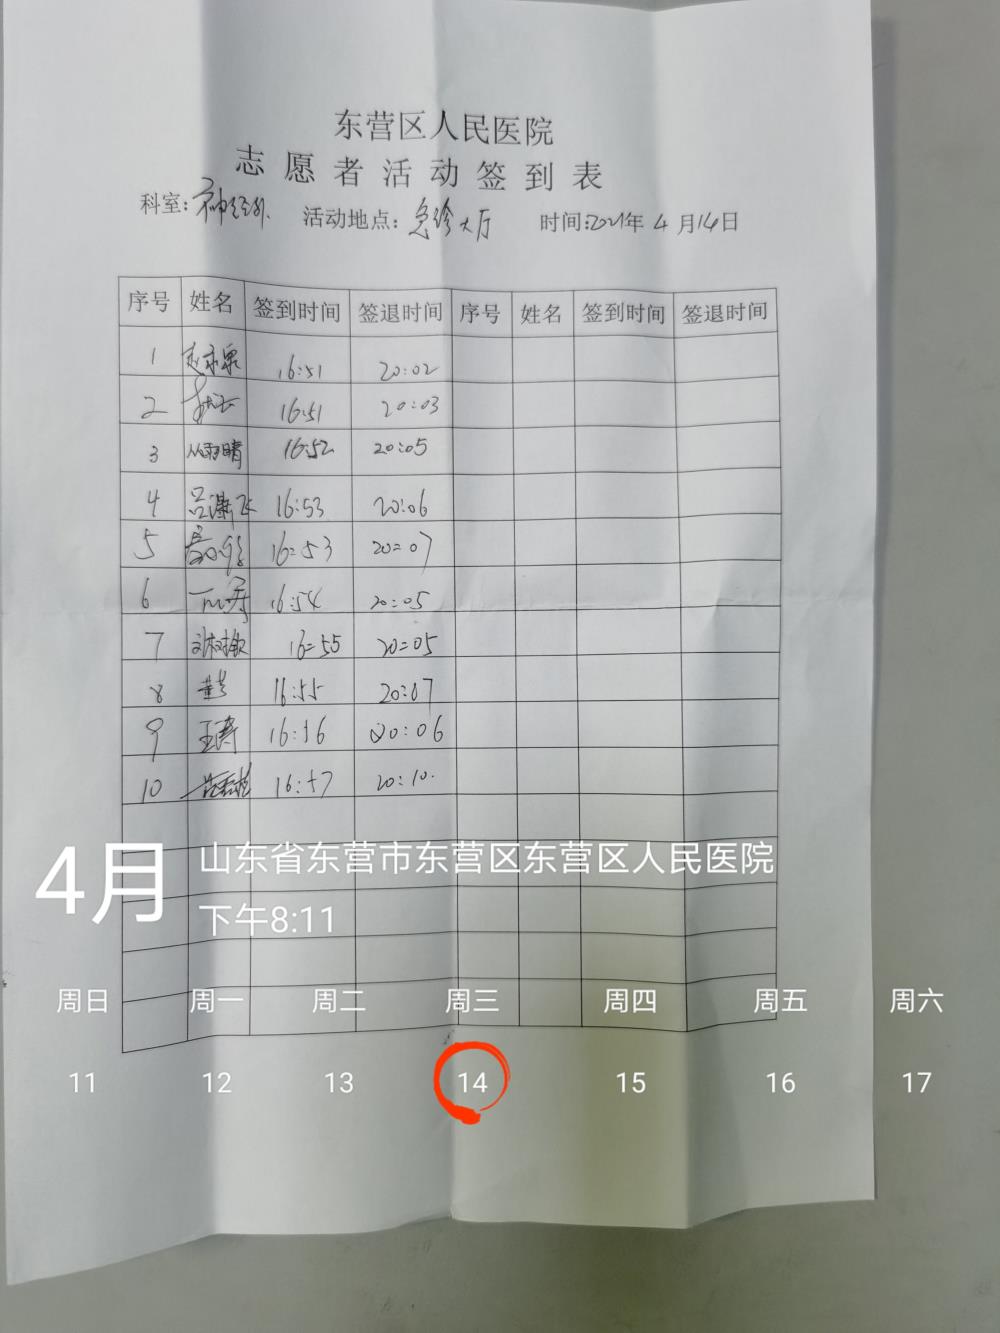 东营区人民医院
志愿者活动签到表
科室:神经外 活动地点:急诊大厅 时间:2021年4月14日
序号 姓名 签到时间 签退时间 序号 姓名 签到时间 签退时间
1 16:51 20:02
2 16:51 20:03
3 丛雨晴 16:52 20:05
4 16:53 20:06
5 16:53 20:07
6 16:54 20:05
7 16:55 20:05
8 16:55 20:07
9 王涛 16:56 20:06
10 16:57 20:10.
4月
山东省东营市东营区东营区人民医院
下午8:11
周日 周一 周二 周三 周四 周五 周六
11 12 13 14 15 16 17